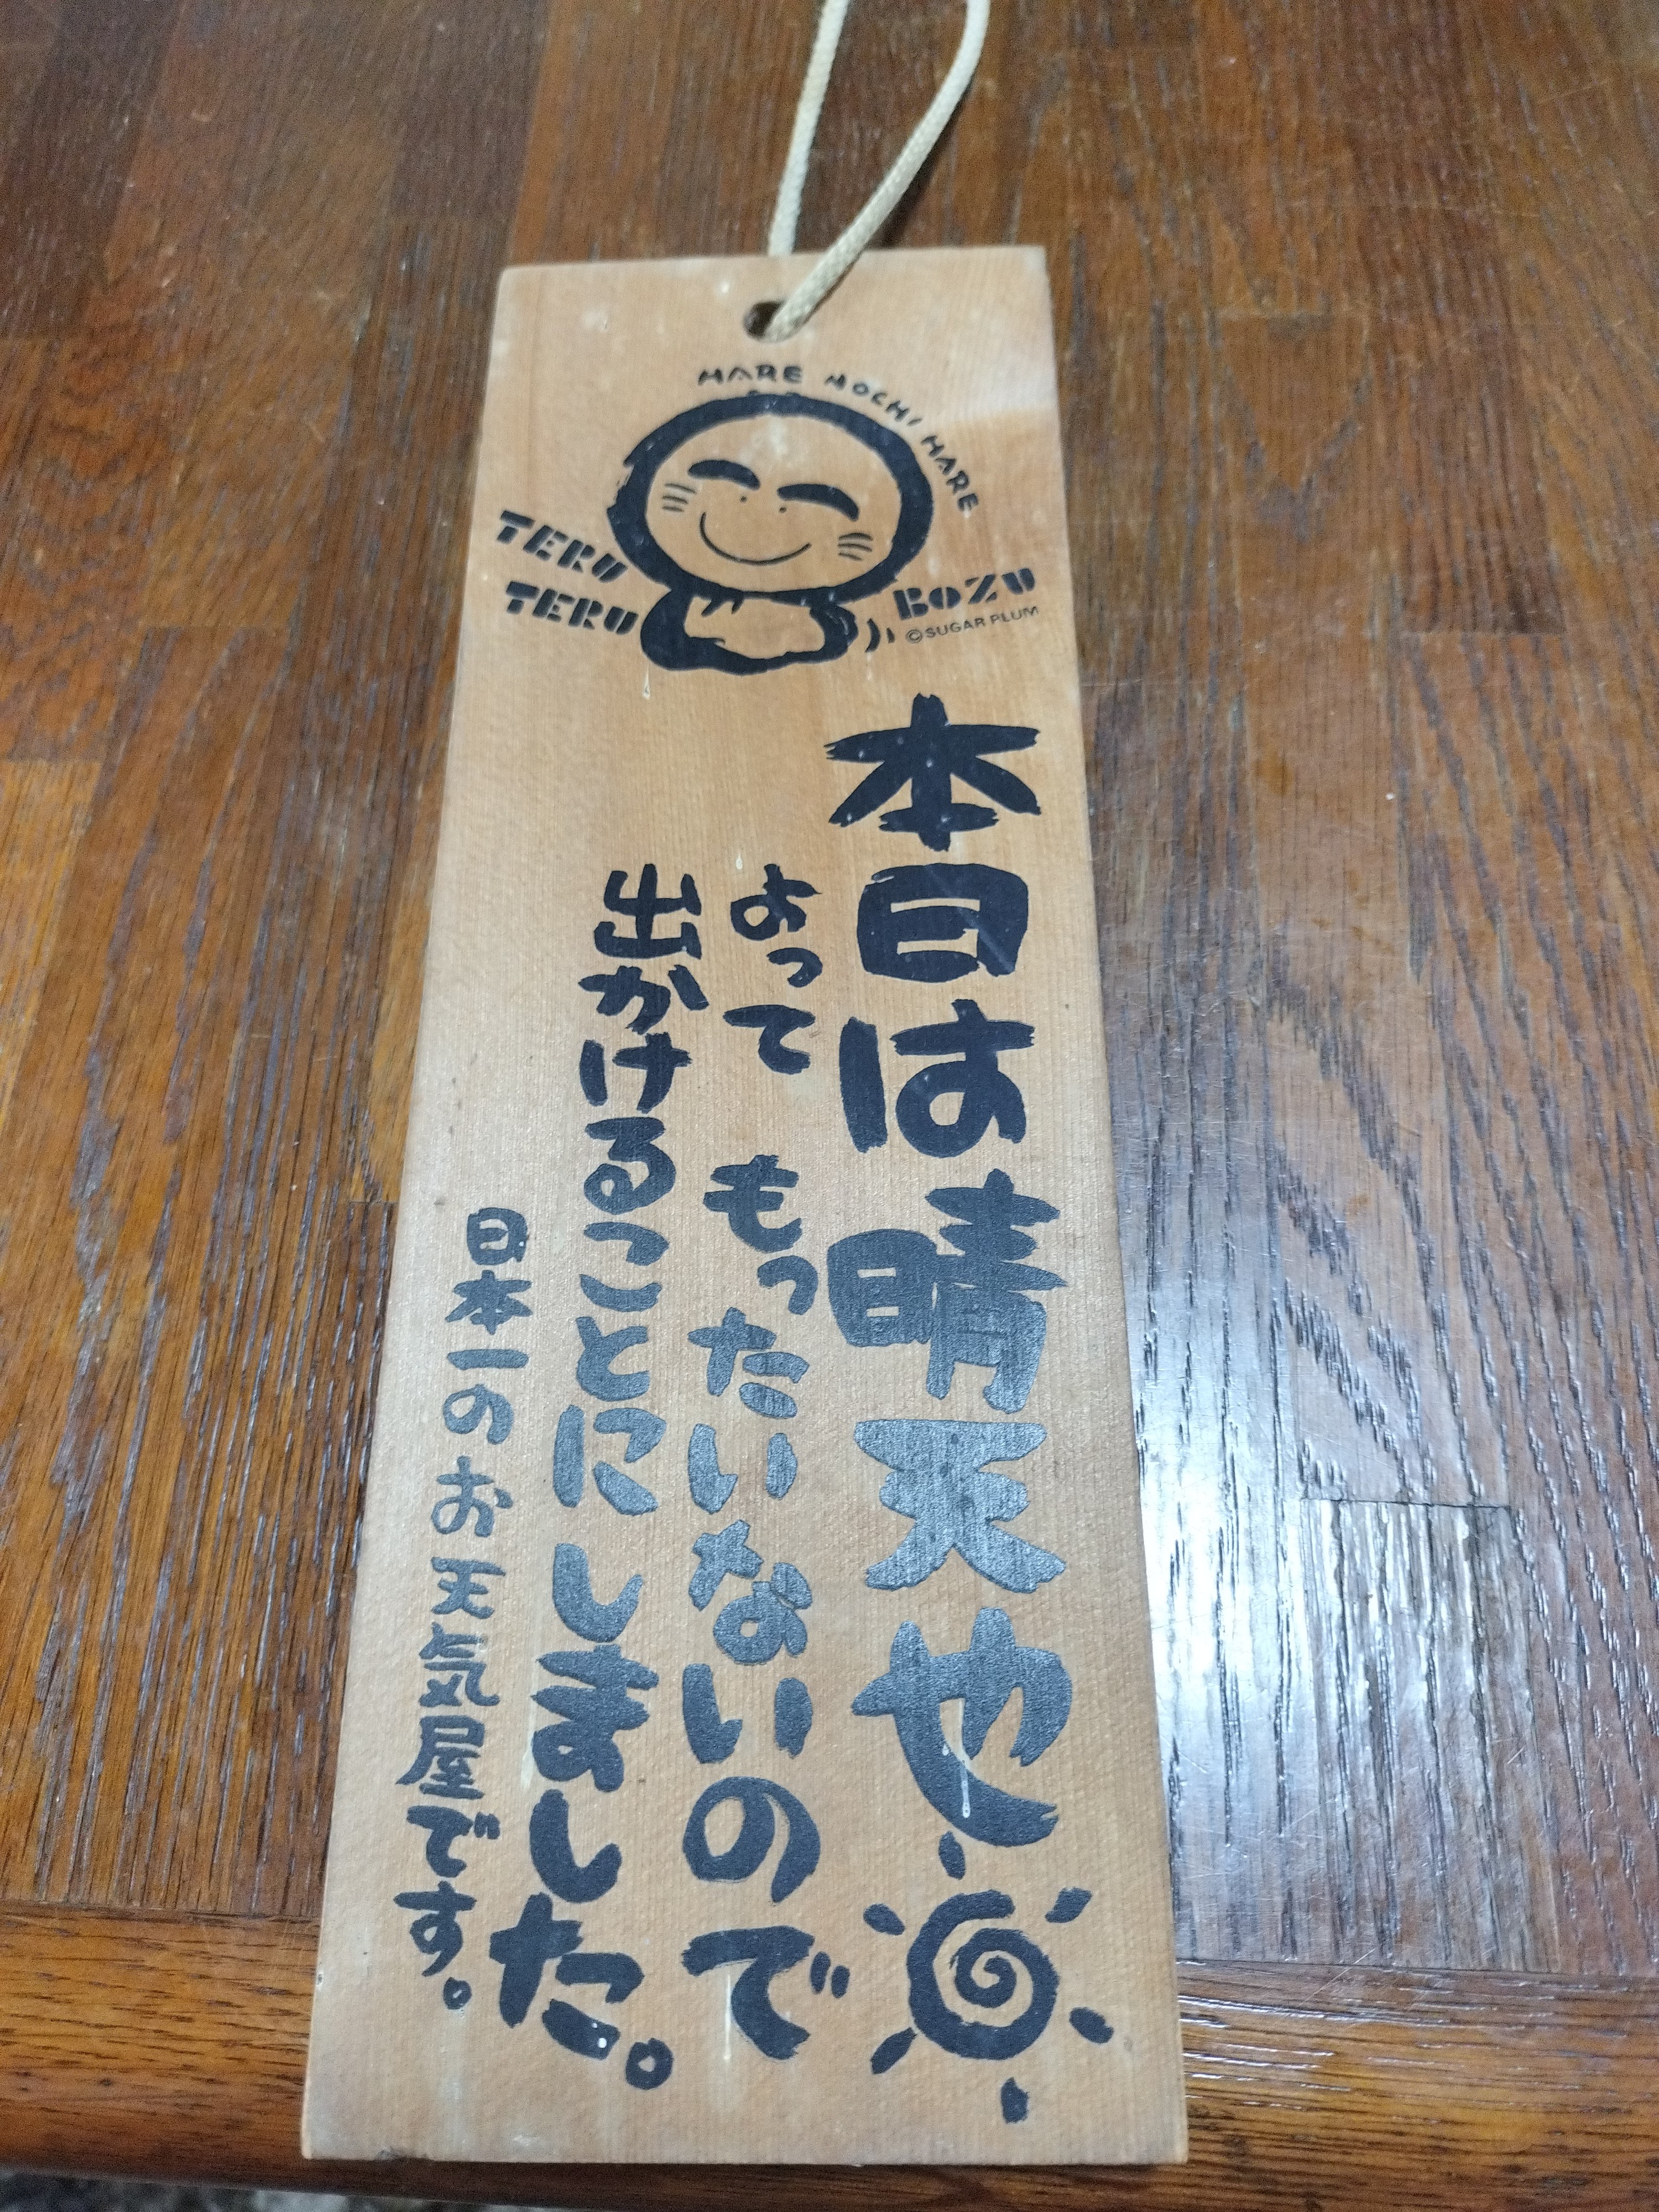 HARE NOCHI HARE
TERU
TERU
BOZU
©SUGAR PLUM
本日は晴天也
よって もったいないので
出かけることにしました。
日本一のお天気屋です。